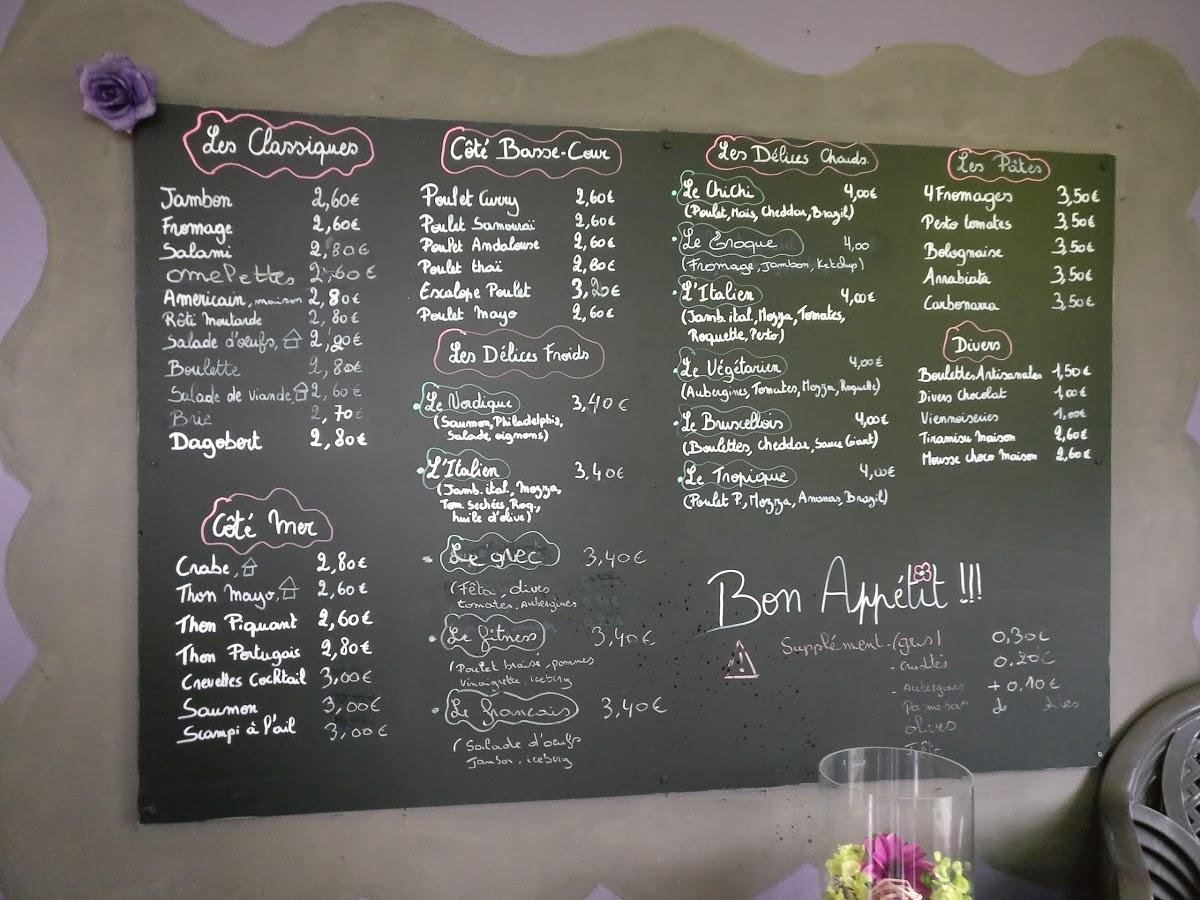 Les Classiques
Jambon 2,60€
Fromage 2,60€
Salami 2,80€
omelettes 2,60€
Americain, maison 2,80€
Rôti moutarde 2,80€
Salade d'œufs, 2,20€
Boulette 2,80€
Salade de viande 2,60€
Brie 2,70€
Dagobert 2,80€
Côté Mer
Crabe, 2,80€
Thon Mayo, 2,60€
Thon Piquant 2,60€
Thon Portugais 2,80€
Crevettes Cocktail 3,00€
Saumon 3,00€
Scampi à l'ail 3,00€
Côté Basse-Cour
Poulet Curry 2,60€
Poulet Samouraï 2,60€
Poulet Andalouse 2,60€
Poulet thaï 2,60€
Escalope Poulet 3,20€
Poulet Mayo 2,60€
Les Délices Froids
Le Nordique 3,40€
(Saumon, Philadelphia,
Salade, oignons)
L'Italien 3,40€
(Jamb. ital., Mozza,
Tom. Sechées, Roq.,
huile d'olive)
Le grec 3,40€
(Fêta, olives
tomates, Aubergines
Le fitness 3,40€
(Poulet braisé, pommes
vinaigrette, iceberg
Le francais 3,40€
(Salade d'œufs
Jambon, iceberg
Les Délices Chauds
Le ChiChi 4,00€
(Poulet, Maïs, Cheddar, Brazil)
Le Croque 4,00
(Fromage, Jambon, Ketchup)
L'Italien 4,00€
(Jamb. ital, Mozza, Tomates,
Roquette, Pesto)
Le Végétarien 4,00€
(Aubergines, Tomates, Mozza, Roquette)
Le Bruxellois 4,00€
(Boulettes, Cheddar, Sauce Giant)
Le Tropique 4,00€
(Poulet P., Mozza, Ananas, Brazil)
Les Pâtes
4 Fromages 3,50€
Pesto tomates 3,50€
Bolognaise 3,50€
Arrabiata 3,50€
Carbonara 3,50€
Divers
Boulettes Artisanales 1,50€
Divers chocolat 1,00€
Viennoiseries 1,00€
Tiramisu Maison 2,60€
Mousse choco Maison 2,60€
Bon Appétit !!!
Supplément - (gris) 0,30€
- crudités 0,20€
- Aubergines + 0,10€
Parmesan
olives